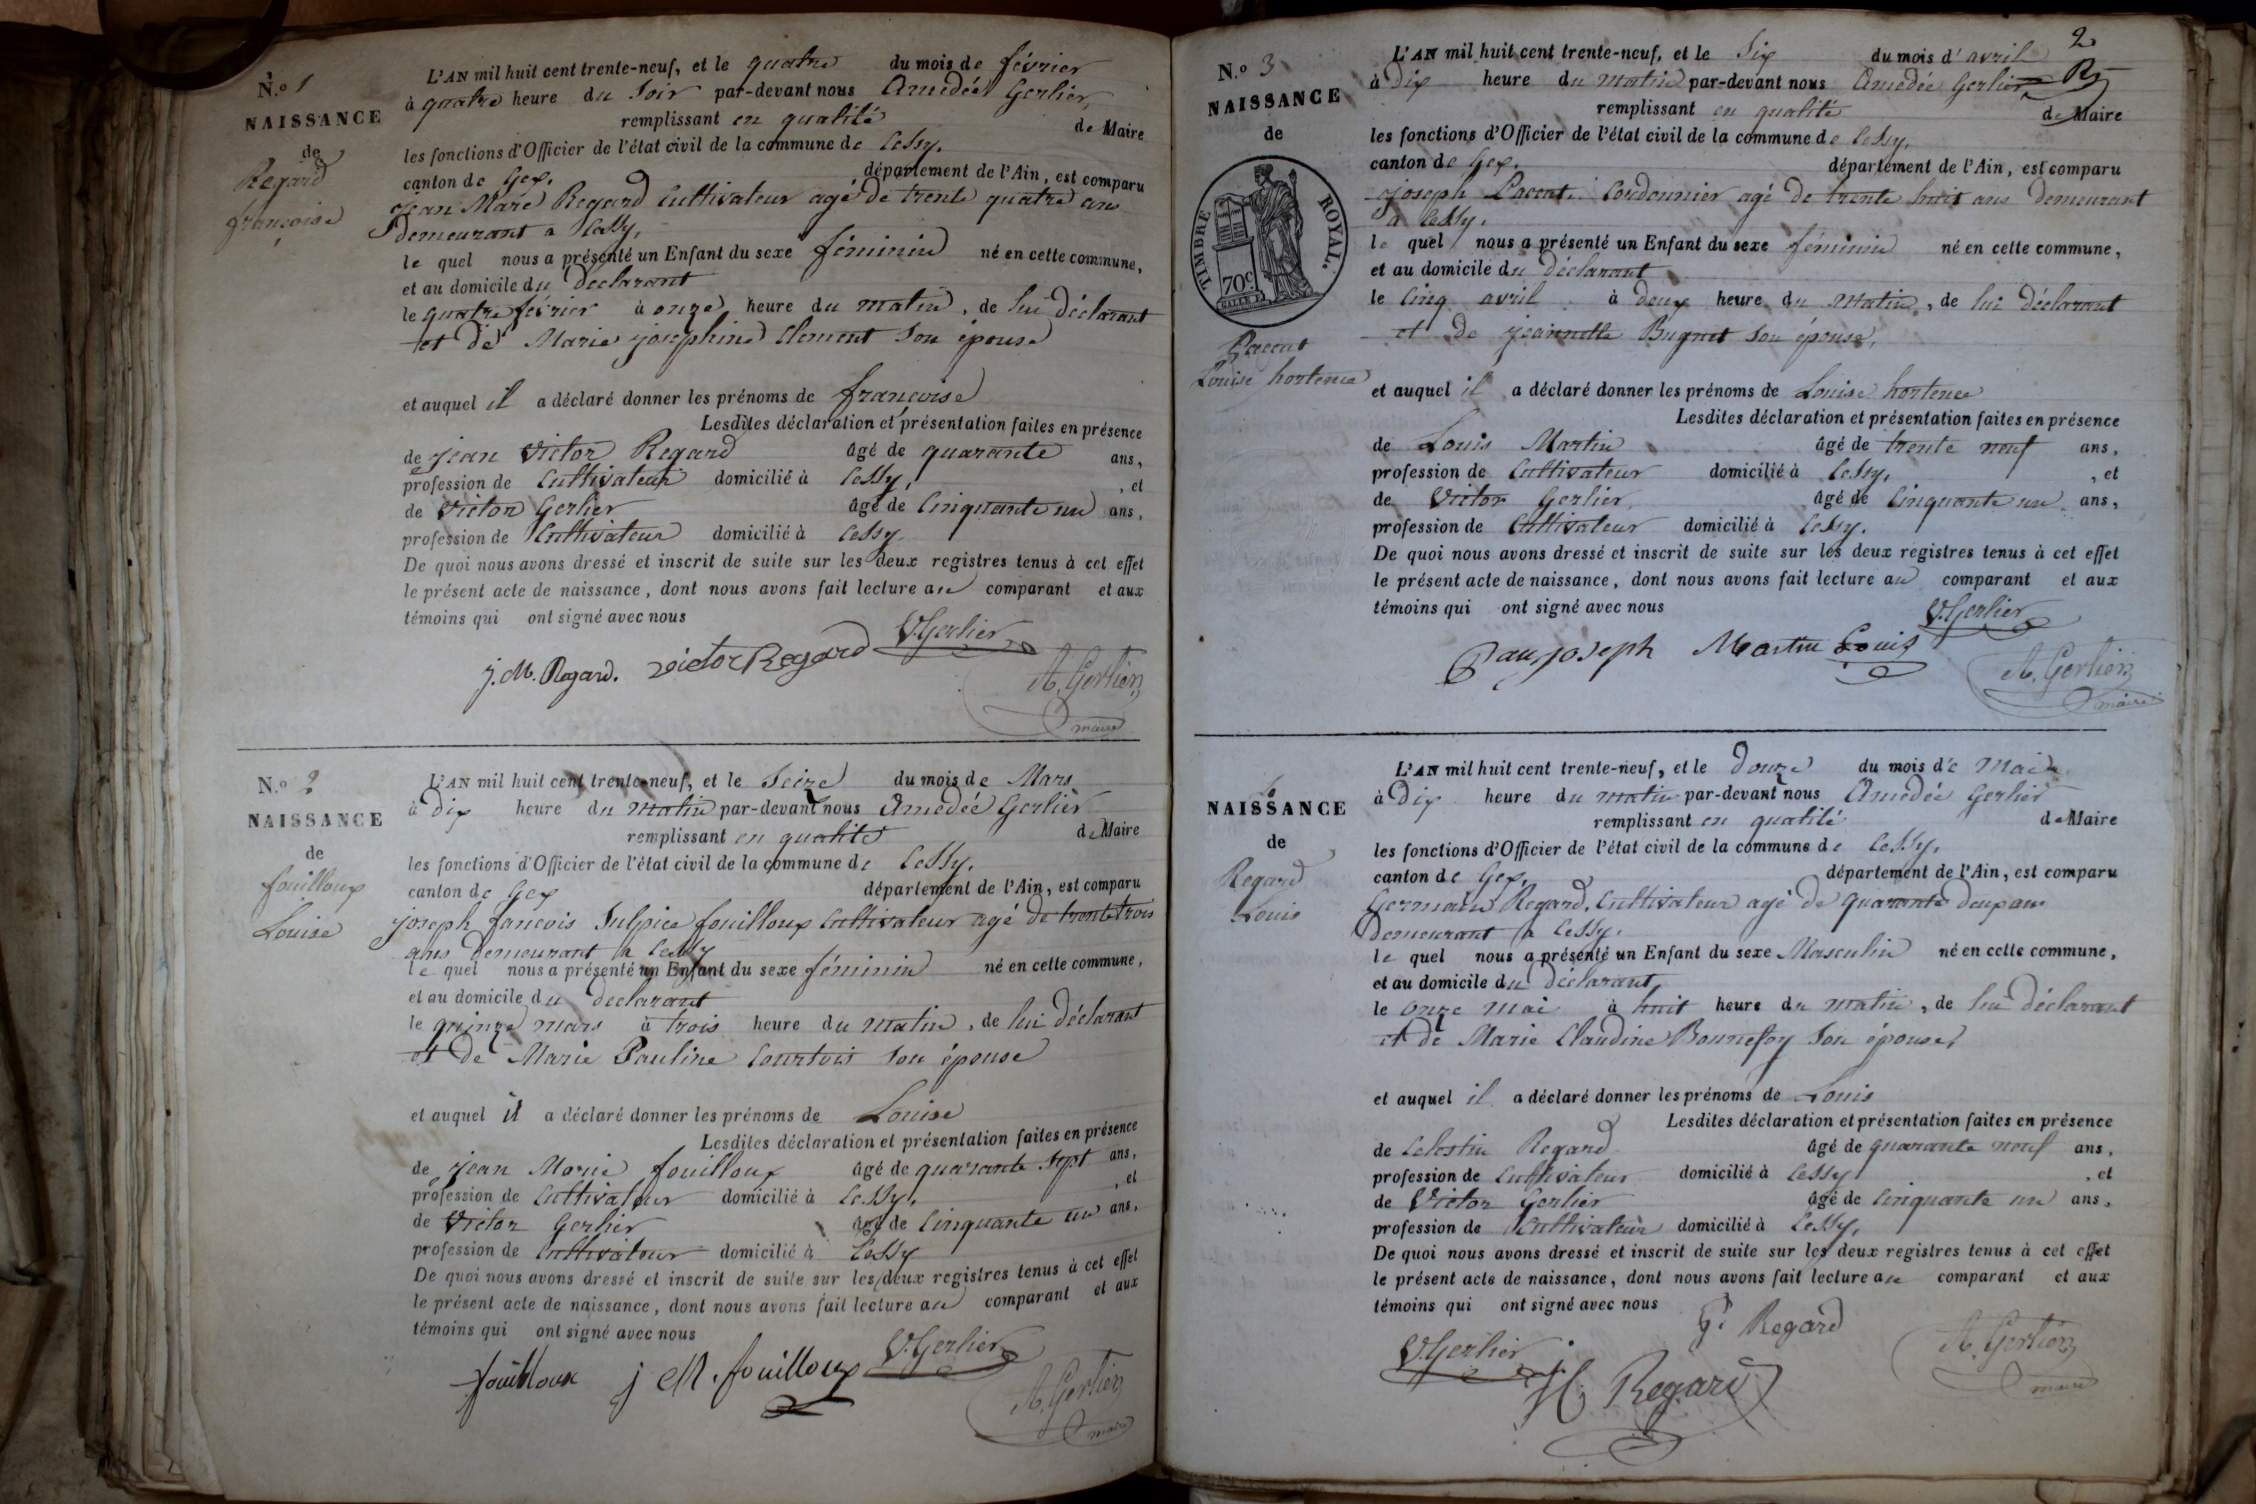 N.º 1
NAISSANCE
de
Regard
françoise
L'AN mil huit cent trente-neuf, et le quatre du mois de février
à quatre heure du Soir par-devant nous Amédée Gerlier,
remplissant en qualité de Maire
les fonctions d'Officier de l'état civil de la commune de Cessy.
canton de Gex. département de l'Ain, est comparu
Jean Marie Regard Cultivateur agé de trente quatre ans
demeurant a Cessy,
le quel nous a présenté un Enfant du sexe féminin né en cette commune,
et au domicile du Déclarant
le quatre février à onze heure du matin, de lui déclarant
et de Marie josephine Clement Son épouse
et auquel il a déclaré donner les prénoms de françoise
Lesdites déclaration et présentation faites en présence
de jean victor Regard âgé de quarante ans,
profession de Cultivateur domicilié à Cessy, , et
de Victor Gerlier âgé de Cinquante un ans,
profession de Cultivateur domicilié à Cessy.
De quoi nous avons dressé et inscrit de suite sur les deux registres tenus à cet effet
le présent acte de naissance, dont nous avons fait lecture au comparant et aux
témoins qui ont signé avec nous
V. Gerlier
j. M. Regard. victor Regard
A. Gerlier
maire
N.º 2
NAISSANCE
de
fouilloux
Louise
L'AN mil huit cent trente-neuf, et le Seize du mois de Mars
à Dix heure du matin par-devant nous Amédée Gerlier
remplissant en qualité de Maire
les fonctions d'Officier de l'état civil de la commune de Cessy,
canton de Gex département de l'Ain, est comparu
joseph fancois Sulpice fouilloux Cultivateur agé de trente trois
ans demeurant a Cessy
le quel nous a présenté un Enfant du sexe féminin né en cette commune,
et au domicile du déclarant
le quinze mars à trois heure du matin, de lui déclarant
et de Marie Pauline Courtois son épouse
et auquel il a déclaré donner les prénoms de Louise
Lesdites déclaration et présentation faites en présence
de jean Marie fouilloux âgé de quarante sept ans,
profession de Cultivateur domicilié à Cessy, , et
de Victor Gerlier âgé de Cinquante un ans,
profession de Cultivateur domicilié à Cessy
De quoi nous avons dressé et inscrit de suite sur les deux registres tenus à cet effet
le présent acte de naissance, dont nous avons fait lecture au comparant et aux
témoins qui ont signé avec nous
V. Gerlier
fouilloux j M. fouilloux
A. Gerlier
maire
2
N.º 3
NAISSANCE
de
TIMBRE ROYAL.
70c.
Louise hortence
L'AN mil huit cent trente-neuf, et le Six du mois d'avril
à Dix heure du matin par-devant nous Amédée Gerlier
remplissant en qualité de Maire
les fonctions d'Officier de l'état civil de la commune de Cessy.
canton de Gex. département de l'Ain, est comparu
joseph Cordonnier agé de trente huit ans demeurant
a Cessy.
le quel nous a présenté un Enfant du sexe féminin né en cette commune,
et au domicile du déclarant
le Cinq avril à deux heure du matin, de lui déclarant
et de jeannette Bugnet son épouse,
et auquel il a déclaré donner les prénoms de Louise hortence
Lesdites déclaration et présentation faites en présence
de Louis Martin âgé de trente neuf ans,
profession de Cultivateur domicilié à Cessy, , et
de Victor Gerlier, âgé de Cinquante un ans,
profession de Cultivateur domicilié à Cessy.
De quoi nous avons dressé et inscrit de suite sur les deux registres tenus à cet effet
le présent acte de naissance, dont nous avons fait lecture au comparant et aux
témoins qui ont signé avec nous
V. Gerlier
joseph Martin Louis
A. Gerlier
maire
NAISSANCE
de
Regard
Louis
L'AN mil huit cent trente-neuf, et le Douze du mois de Mai
à Dix heure du matin par-devant nous Amédée Gerlier
remplissant en qualité de Maire
les fonctions d'Officier de l'état civil de la commune de Cessy.
canton de Gex, département de l'Ain, est comparu
Germain Regard, Cultivateur agé de quarante deux ans
Demeurant a Cessy.
le quel nous a présenté un Enfant du sexe Masculin né en cette commune,
et au domicile du déclarant
le onze mai à huit heure du matin, de lui déclarant
et de Marie Claudine Bonnefoy Son épouse,
et auquel il a déclaré donner les prénoms de Louis
Lesdites déclaration et présentation faites en présence
de Celestin Regard âgé de quarante neuf ans,
profession de Cultivateur domicilié à Cessy , et
de Victor Gerlier âgé de Cinquante un ans,
profession de Cultivateur domicilié à Cessy,
De quoi nous avons dressé et inscrit de suite sur les deux registres tenus à cet effet
le présent acte de naissance, dont nous avons fait lecture au comparant et aux
témoins qui ont signé avec nous
G. Regard
V. Gerlier
Regard
A. Gerlier
maire